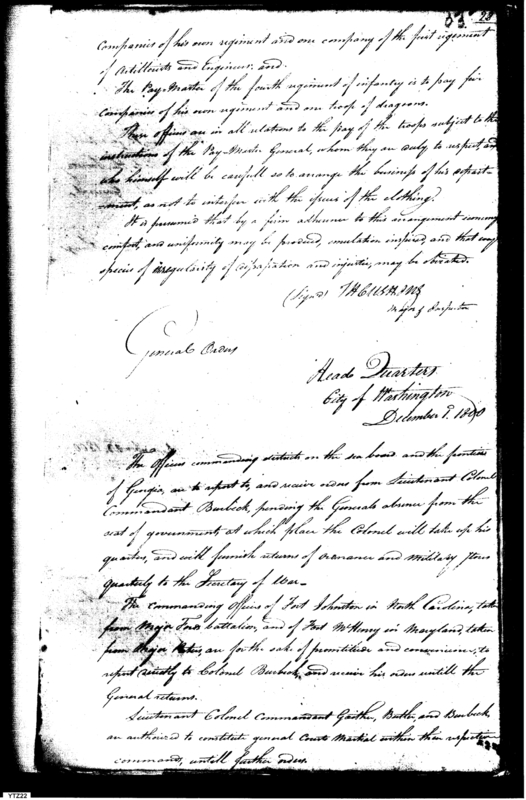 53. 28
companies of his own regiment and one company of the first regiment
of Artillerists and Engineers; and.
The Pay-Master of the fourth regiment of infantry is to pay five
companies of his own regiment and one troop of dragoons.
These officers are in all relations to the pay of the troops subject to the
instructions of the Pay-Master General, whom they are duly to respect and
who himself will be carefull so to arrange the business of his depart-
ment, as not to interfere with the issues of the clothing.
It is presumed that by a firm adherence to this arrangement economy
comfort, and uniformity may be produced, emulation inspired, and that every
species of irregularity of and injustice, may be obviated.
(Signed) T H CUSHING
Major & Inspector
General Orders
Head Quarters
City of Washington
December 9. 1800
The Officers commanding districts on the sea board and the frontiers
of Georgia, are to report to, and receive orders from Lieutenant Colonel
Commandant Burbeck, pending the Generals absence from the
seat of government, at which place the Colonel will take up his
quarters, and will furnish returns of ordnance and military stores
quarterly to the Secretary of War—
The commanding officers of Fort Johnston in North Carolina, taken
from Major battalion, and of Fort McHenry in Maryland, taken
from Major are for the sake of promptitude and convenience, to
report directly to Colonel Burbeck, and receive his orders untill the
General returns.
Lieutenant Colonel Commandant Gaither, Butler, and Burbeck,
are authorised to constitute general Courts Martial within their respective
commands, untill further orders.
YTZ22